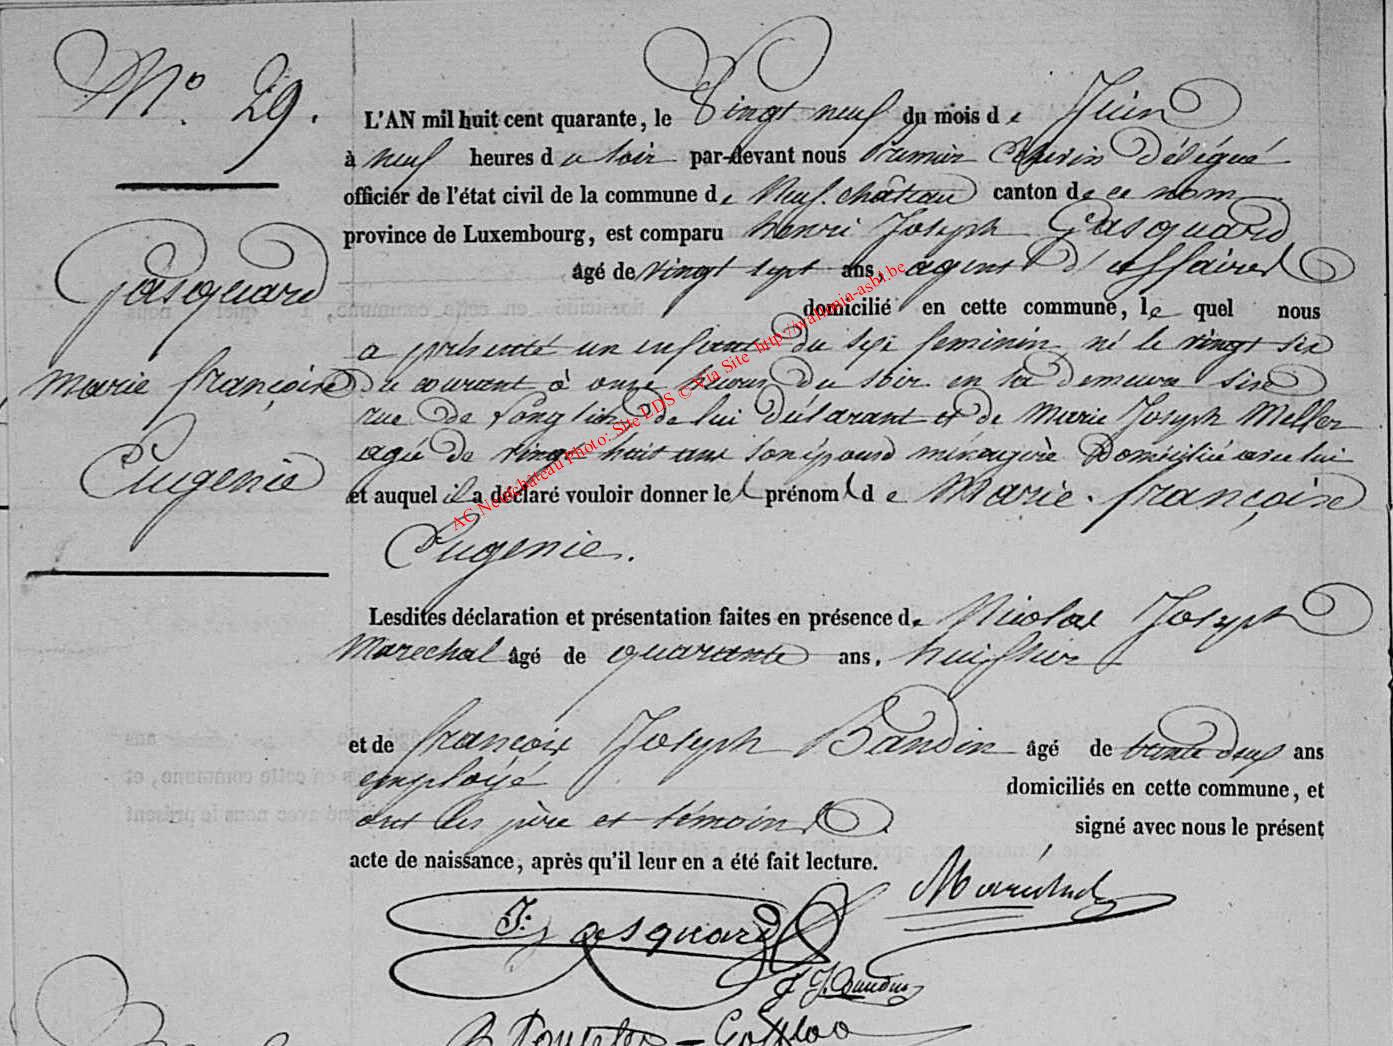 N.º 29.
L'AN mil huit cent quarante, le Vingt neuf du mois de Juin
à neuf heures du soir par-devant nous Premier Echevin Délégué
officier de l'état civil de la commune de Neufchâteau canton de ce nom
province de Luxembourg, est comparu henri Joseph Gasquard
âgé de vingt sept ans, agent d'affaires
domicilié en cette commune, le quel nous
a présenté un enfant du sexe feminin né le vingt six
du courant à onze heures du soir en sa demeure sise
rue de Longlier de lui déclarant et de Marie Joseph Meller
agée de vingt huit ans son épouse ménagère Domiciliée avec lui
et auquel il a déclaré vouloir donner les prénoms de Marie françoise
Eugenie.
Gasquard
Marie françoise
Eugenie
Lesdites déclaration et présentation faites en présence de Nicolas Joseph
Marechal âgé de quarante ans, huissier
et de françois Joseph Baudin âgé de trente deux ans
employé domiciliés en cette commune, et
ont les père et témoins signé avec nous le présent
acte de naissance, après qu'il leur en a été fait lecture.
Maréchal
J: Gasquard
f J. Baudin
AC Neufchâteau Photo: Site LDS © Via Site http://wallonia-asbl.be